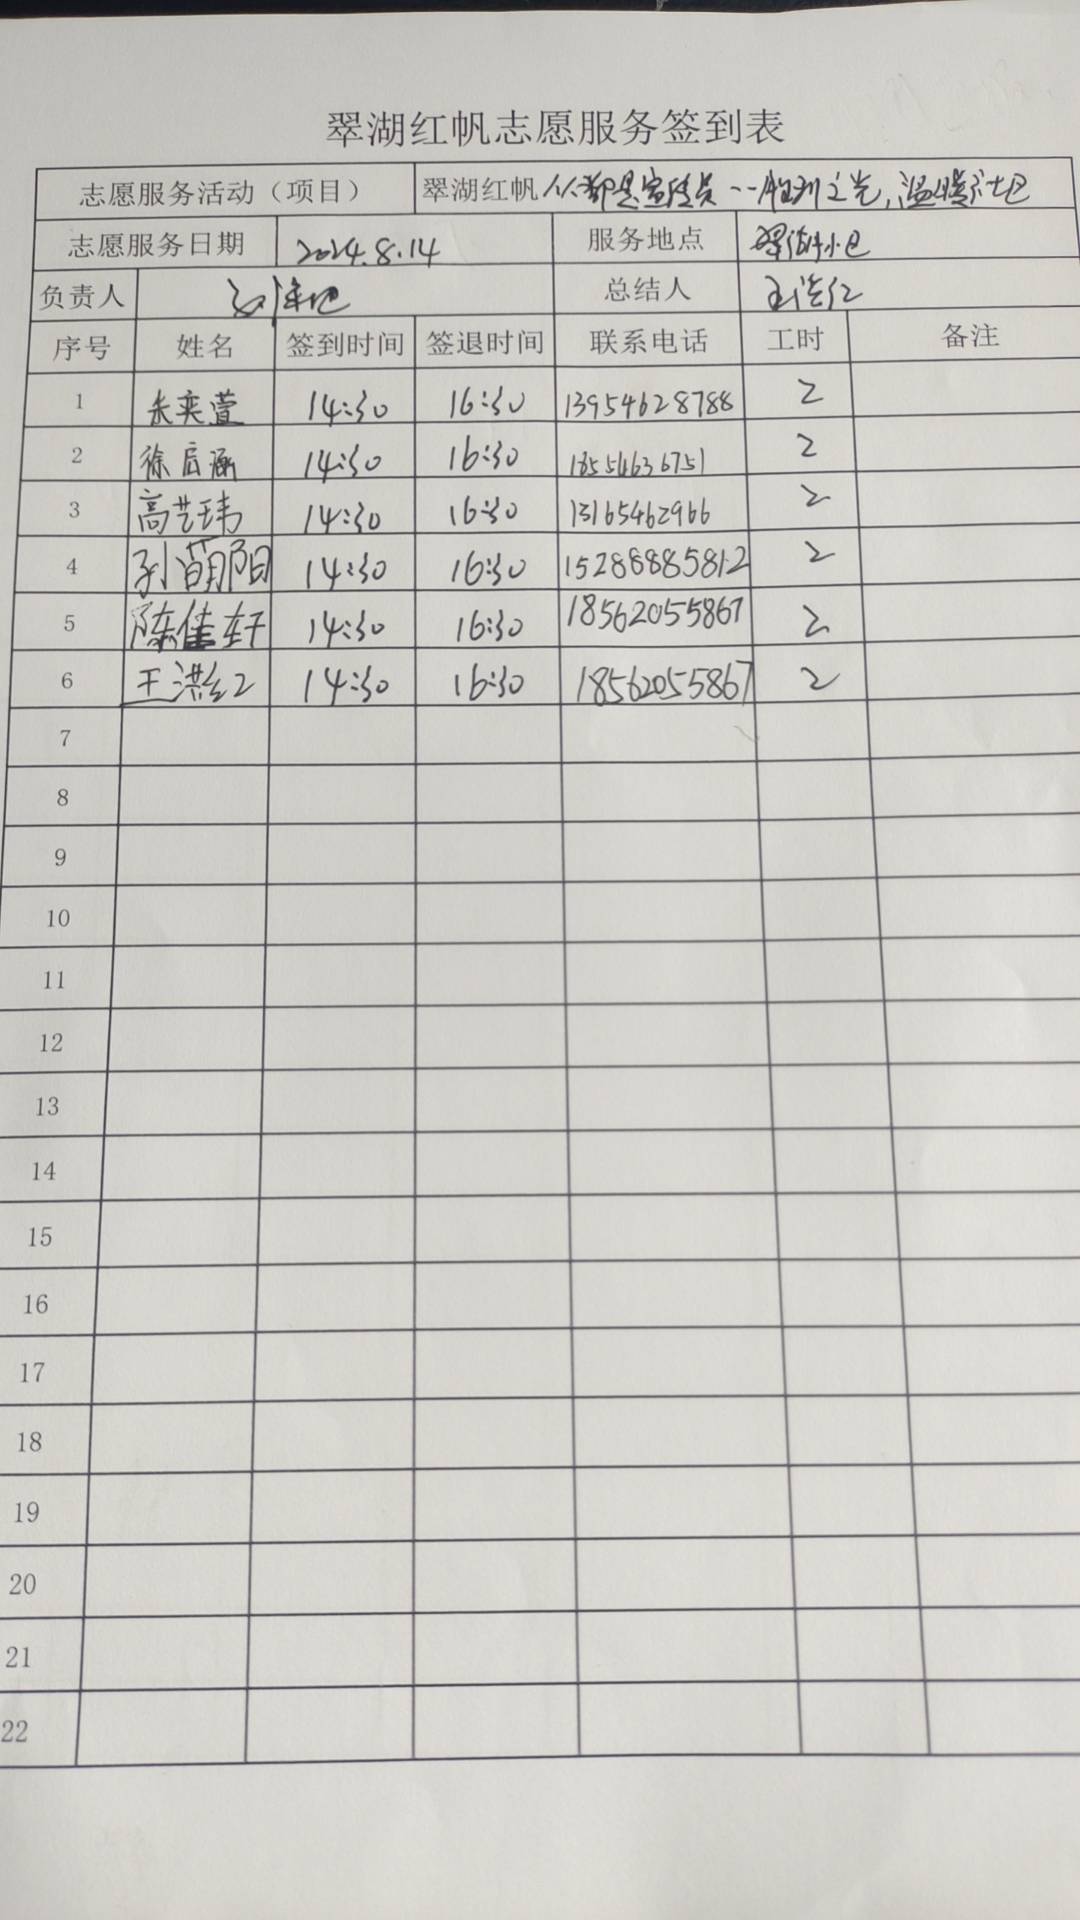 翠湖红帆志愿服务签到表
志愿服务活动（项目） 翠湖红帆人人都是宣传员--之光,温暖社区
志愿服务日期 2024.8.14 服务地点 翠湖小区
负责人 总结人 王洪红
序号 姓名 签到时间 签退时间 联系电话 工时 备注
1 朱奕萱 14:30 16:30 13954628788 2
2 徐启涵 14:30 16:30 18554636751 2
3 高艺玮 14:30 16:30 13165462966 2
4 孙萌阳 14:30 16:30 15288885812 2
5 陈佳轩 14:30 16:30 18562055867 2
6 王洪红 14:30 16:30 18562055867 2
7
8
9
10
11
12
13
14
15
16
17
18
19
20
21
22